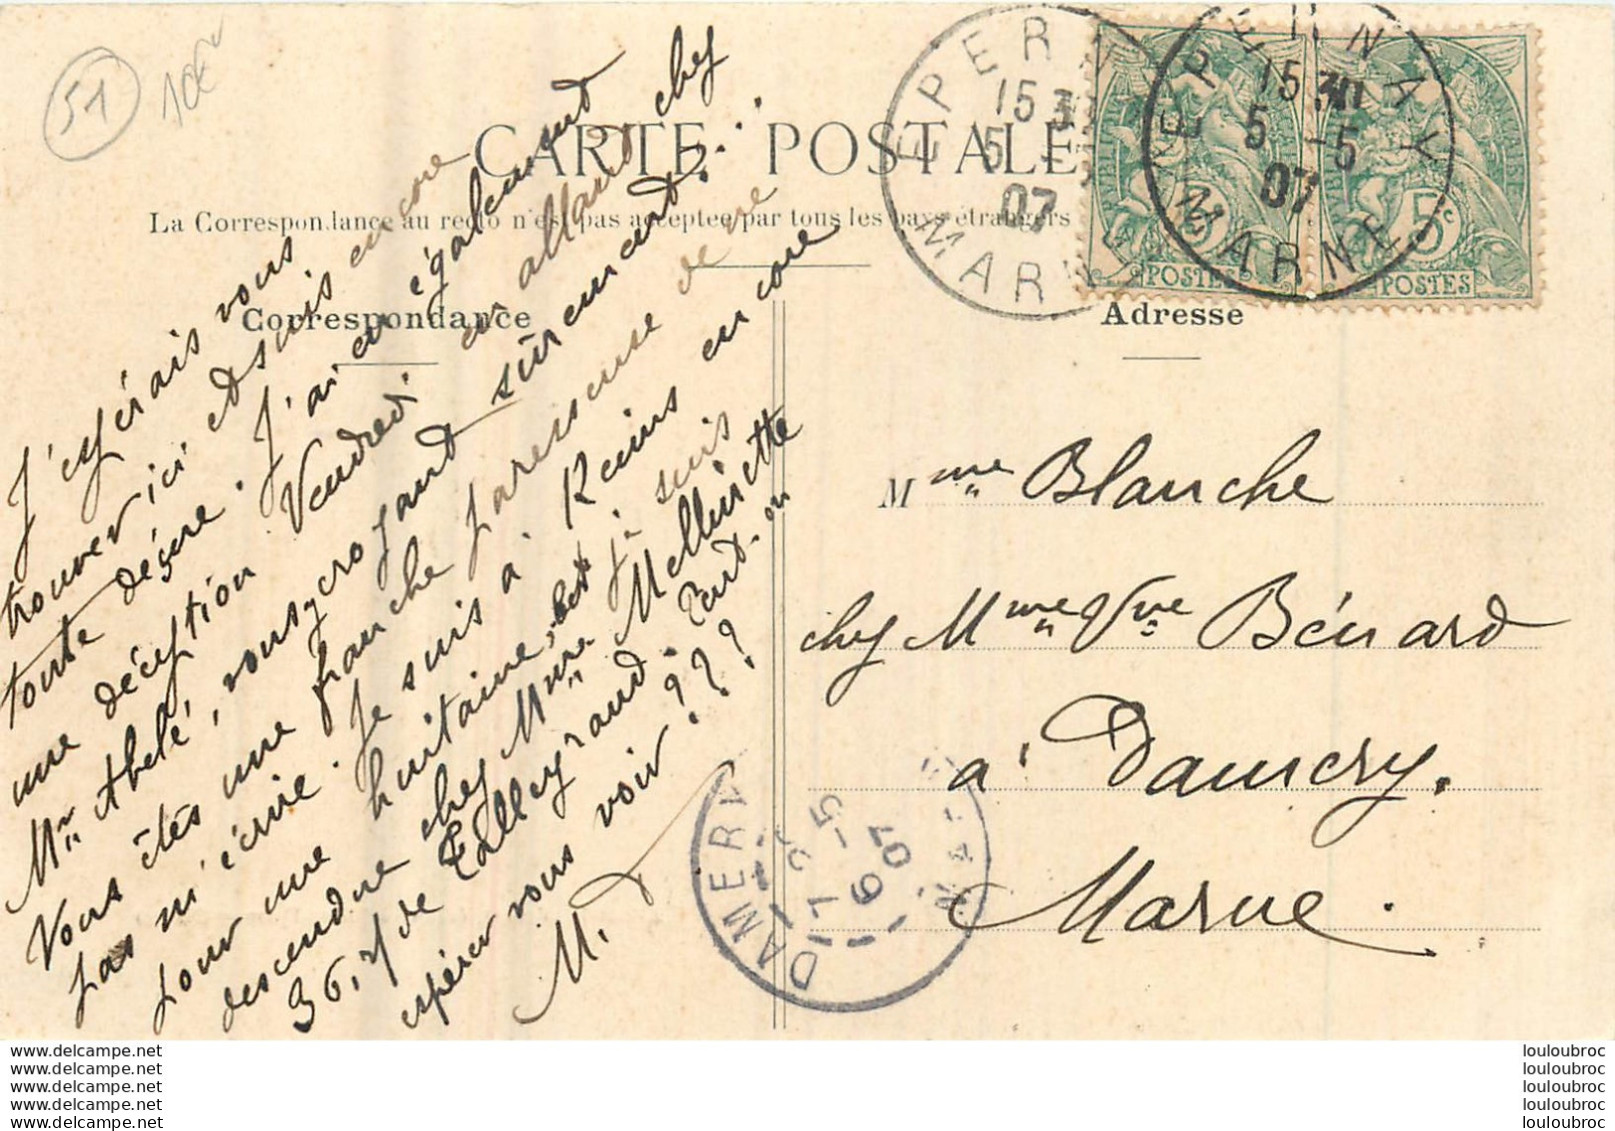 51
10€
CARTE POSTALE
La Correspondance au recto n'est pas acceptée par tous les pays étrangers
Correspondance
Adresse
EPERNAY
15 30
5 -5
07
MARNE
EPERNAY
15 30
5 -5
07
MARNE
5c
POSTES
5c
POSTES
J'espérais vous
trouver ici et suis encore
toute déçue. J'ai eu également
une déception Vendredi en allant chez
Mr Abelé, vous croyant sûrement.
Vous êtes une franche paresseuse de ne
pas m'écrire. Je suis à Reims encore
pour une huitaine, et je suis
descendue chez Mme Mellinette
36, r de Talleyrand. Peut-on
espérer vous voir ???
M.
Mme Blanche
chez Mme Vve Bénard
à Damery.
Marne.
DAMERY
6 -5
07
MARNE
www.delcampe.net
www.delcampe.net
www.delcampe.net
www.delcampe.net
www.delcampe.net
louloubroc
louloubroc
louloubroc
louloubroc
louloubroc